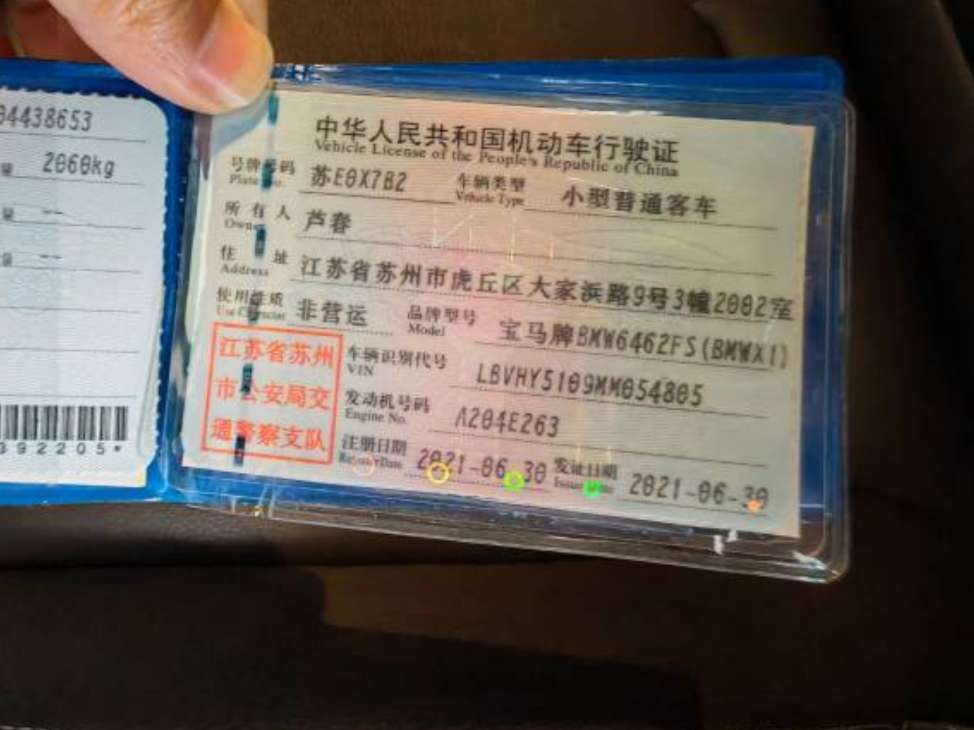 04438653
2060kg
--
--
392205*
中华人民共和国机动车行驶证
Vehicle License of the People's Republic of China
号牌号码 苏E0X7B2 车辆类型 小型普通客车
Plate No. Vehicle Type
所有人 芦春
Owner
住址 江苏省苏州市虎丘区大家浜路9号3幢2002室
Address
使用性质 非营运 品牌型号 宝马牌BMW6462FS(BMWX1)
Use Character Model
江苏省苏州
市公安局交
通警察支队
车辆识别代号 LBVHY5109MM054805
VIN
发动机号码 A204E263
Engine No.
注册日期 2021-06-30 发证日期 2021-06-30
Register Date Issue Date